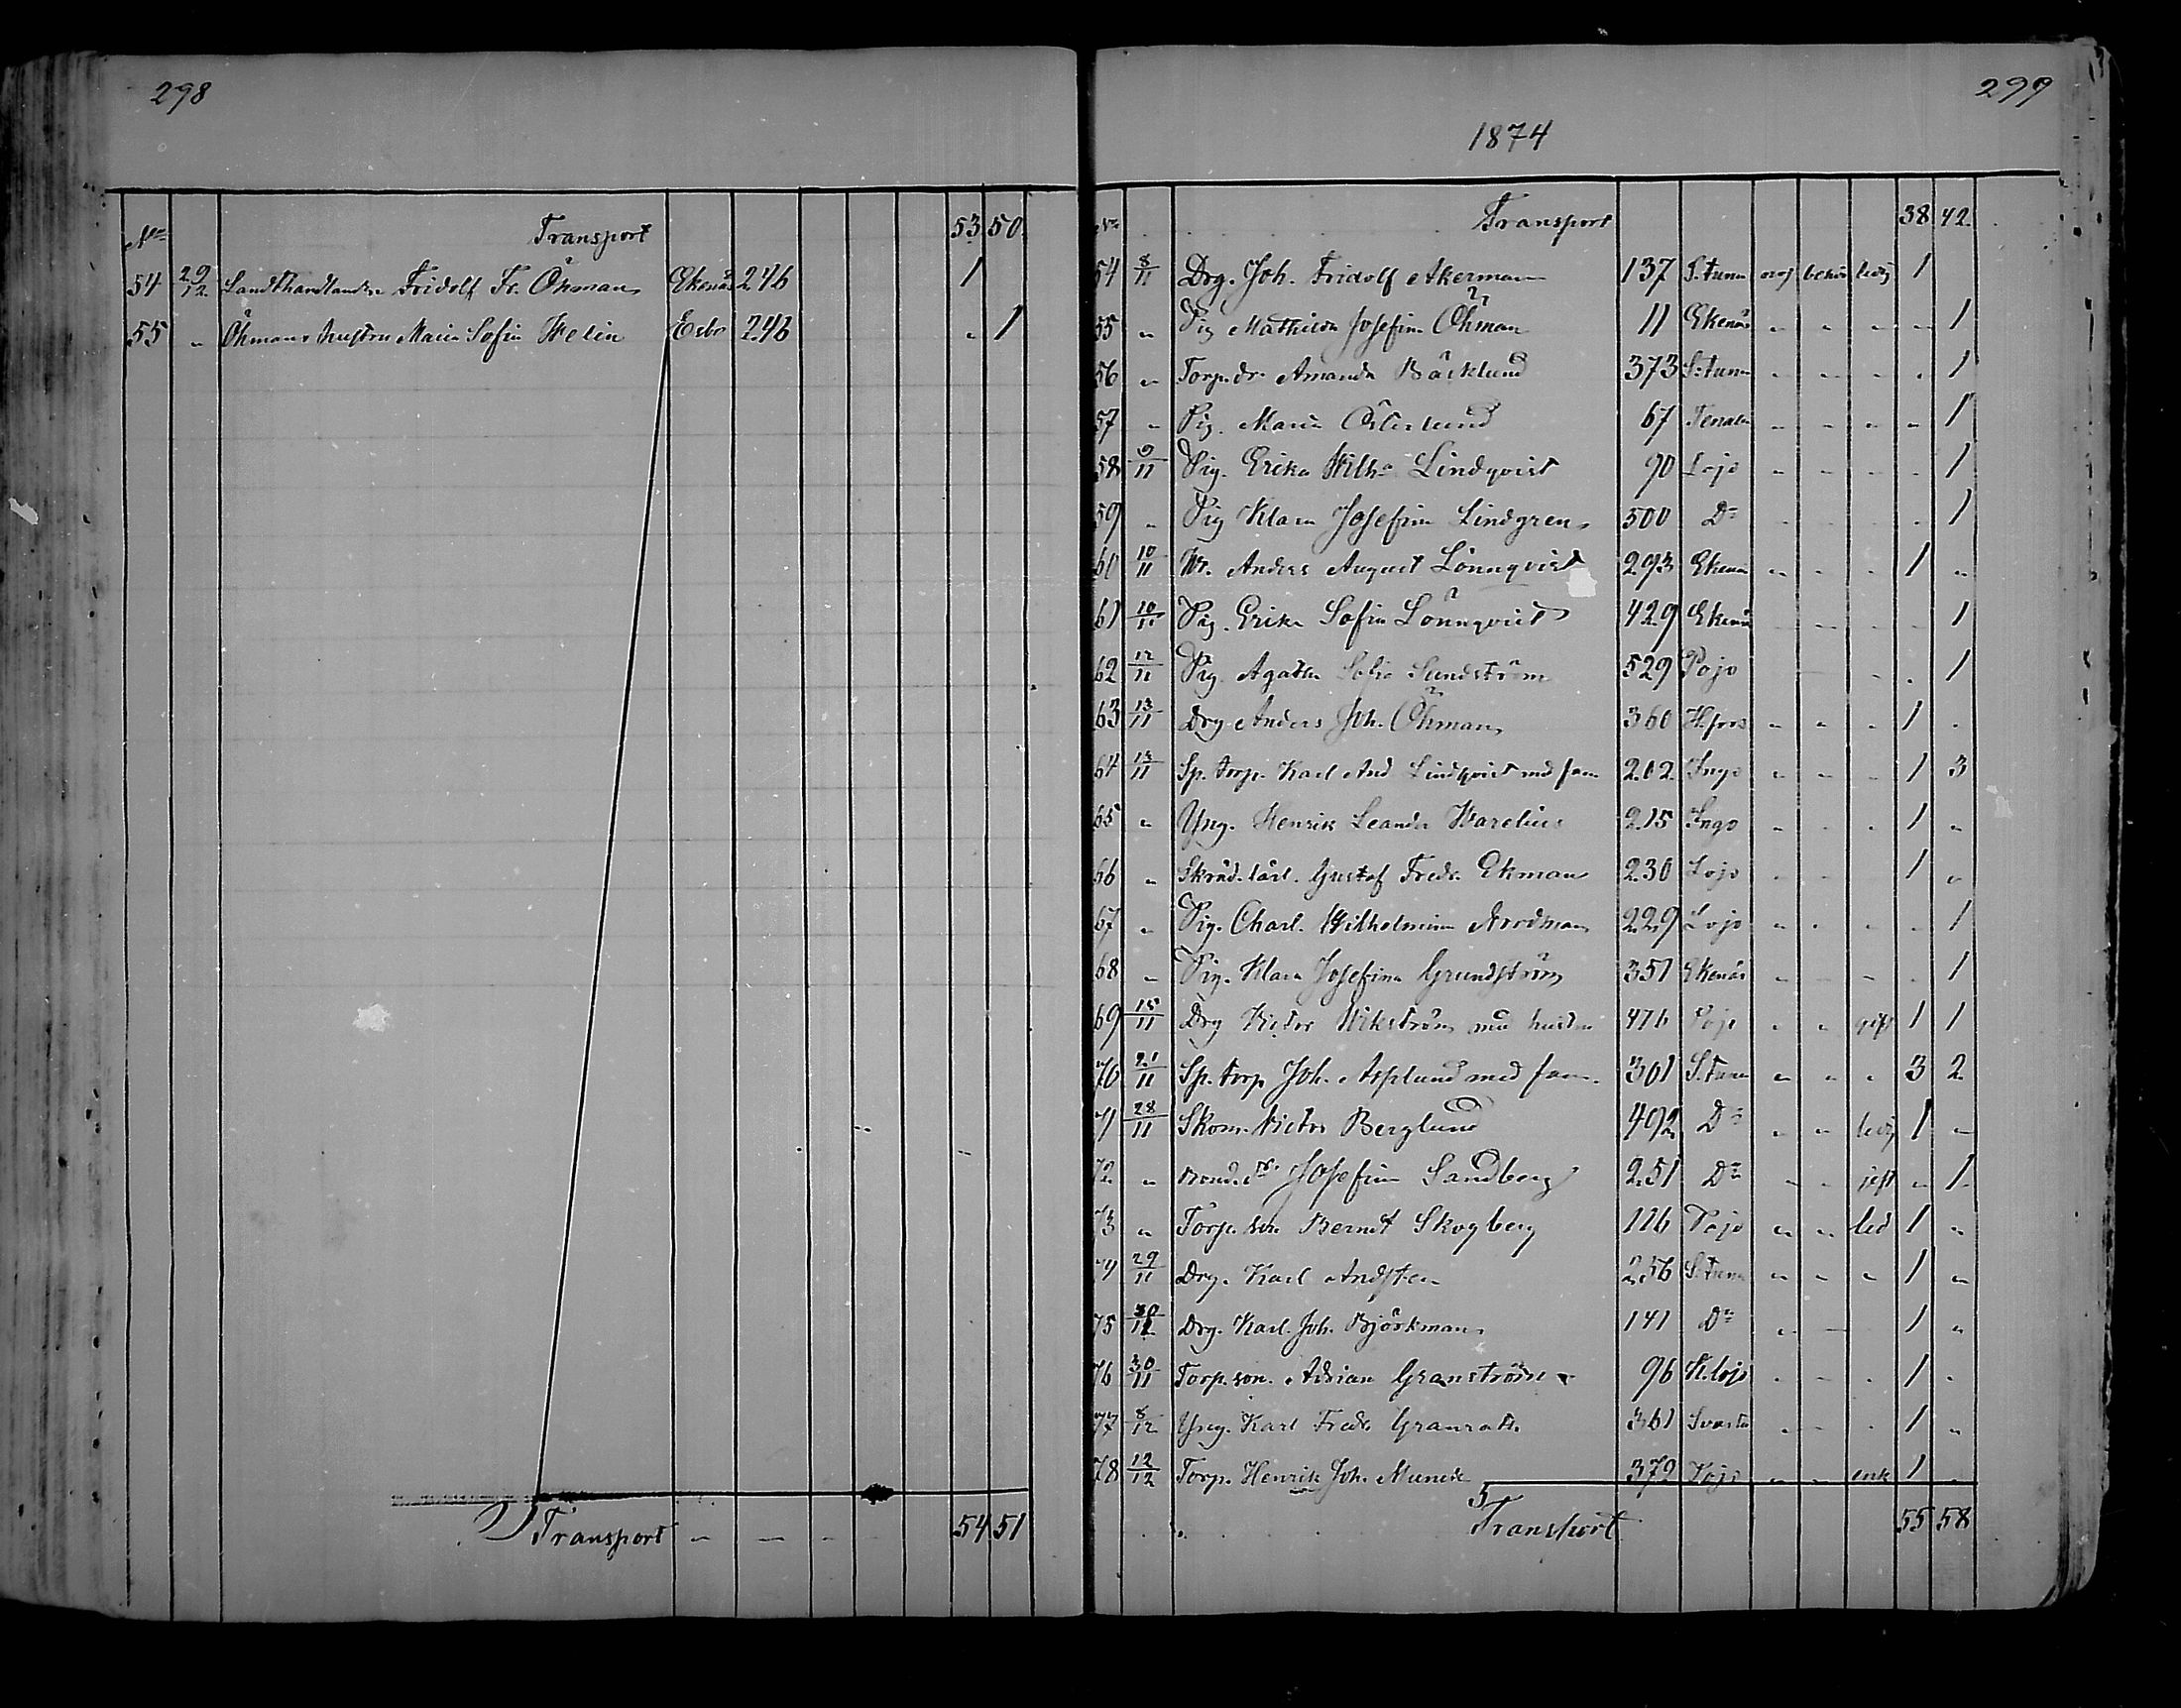 298
No Transport 53 50
54 29/12 Landthandlanden Fridolf Fr. Öhman Ekenäs 246 1
55 " Öhmans hustru Maria Sofia Helin Esbo 246 " 1
Transport - - - 54 51
299
1874
No Transport 38 42
54 8/11 Drg. Joh. Fridolf Akerman 137 S:tunn ledig 1
55 " Pig Mathilda Josefina Öhman 11 Ekenäs " " " " 1
56 " Torp.dr. Amanda Bäcklund 373 S:tunn " " " " 1
57 " Pig. Maria Österlund 67 Tenala " " " " 1
58 9/11 Pig. Erika Wilh:a Lindqvist 90 Lojo " " " " 1
59 " Pig Klara Josefina Lindgren 500 D:o " " " " 1
60 10/11 Anders August Lönnqvist 293 Ekenä " " " 1 "
61 10/11 Pig. Erika Sofia Lönnqvist 429 Ekenä " " " " 1
62 12/11 Pig. Agatha Sofia Sundström 529 Pojo " " 1
63 13/11 Drg. Anders Joh. Öhman 360 H.fors " " " 1 "
64 13/11 Sp. torp. Karl And Lindqvist med fam 202 Ingo " " " 1 3
65 " Yng. Henrik Leander Warelius 215 Ingo " " " 1 "
66 " Skräd.lärl. Gustaf Fredr. Ekman 230 Lojo " " 1 "
67 " Pig. Charl. Wilhelmina Nordman 229 Lojo " " " " 1
68 " Pig. Klara Josefina Grundström 351 Ekenäs " " " " 1
69 15/11 Drg Victor Wikström med hustru 476 Pojo " " gift 1 1
70 21/11 Sp. torp Joh. Asplund med fam. 301 S.tunn " " " 3 2
71 28/11 Skom. Victor Berglund 492 D:o " " ledig 1 "
72 " Josefina Sandberg 251 D:o " " gift " 1
73 " Torp. son Bernt Skogberg 116 Pojo " " led 1 "
74 29/11 Drg. Karl Andsten 256 S:tunn " " " 1 "
75 30/11 Drg. Karl Joh. Björkman 141 D:o " " 1 "
76 30/11 Torp. son. Adrian Granström 96 K.lojo " " " 1 "
77 8/12 Yng. Karl Fredr. Granroth 361 " " " 1 "
78 12/12 Torp. Henrik Joh. Munck 372 Pojo " " enk 1 "
Transport 55 58